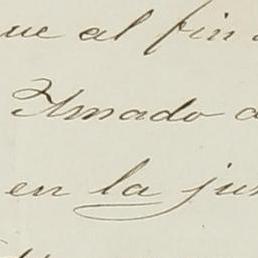 ue al fin
Amado a
en la ju